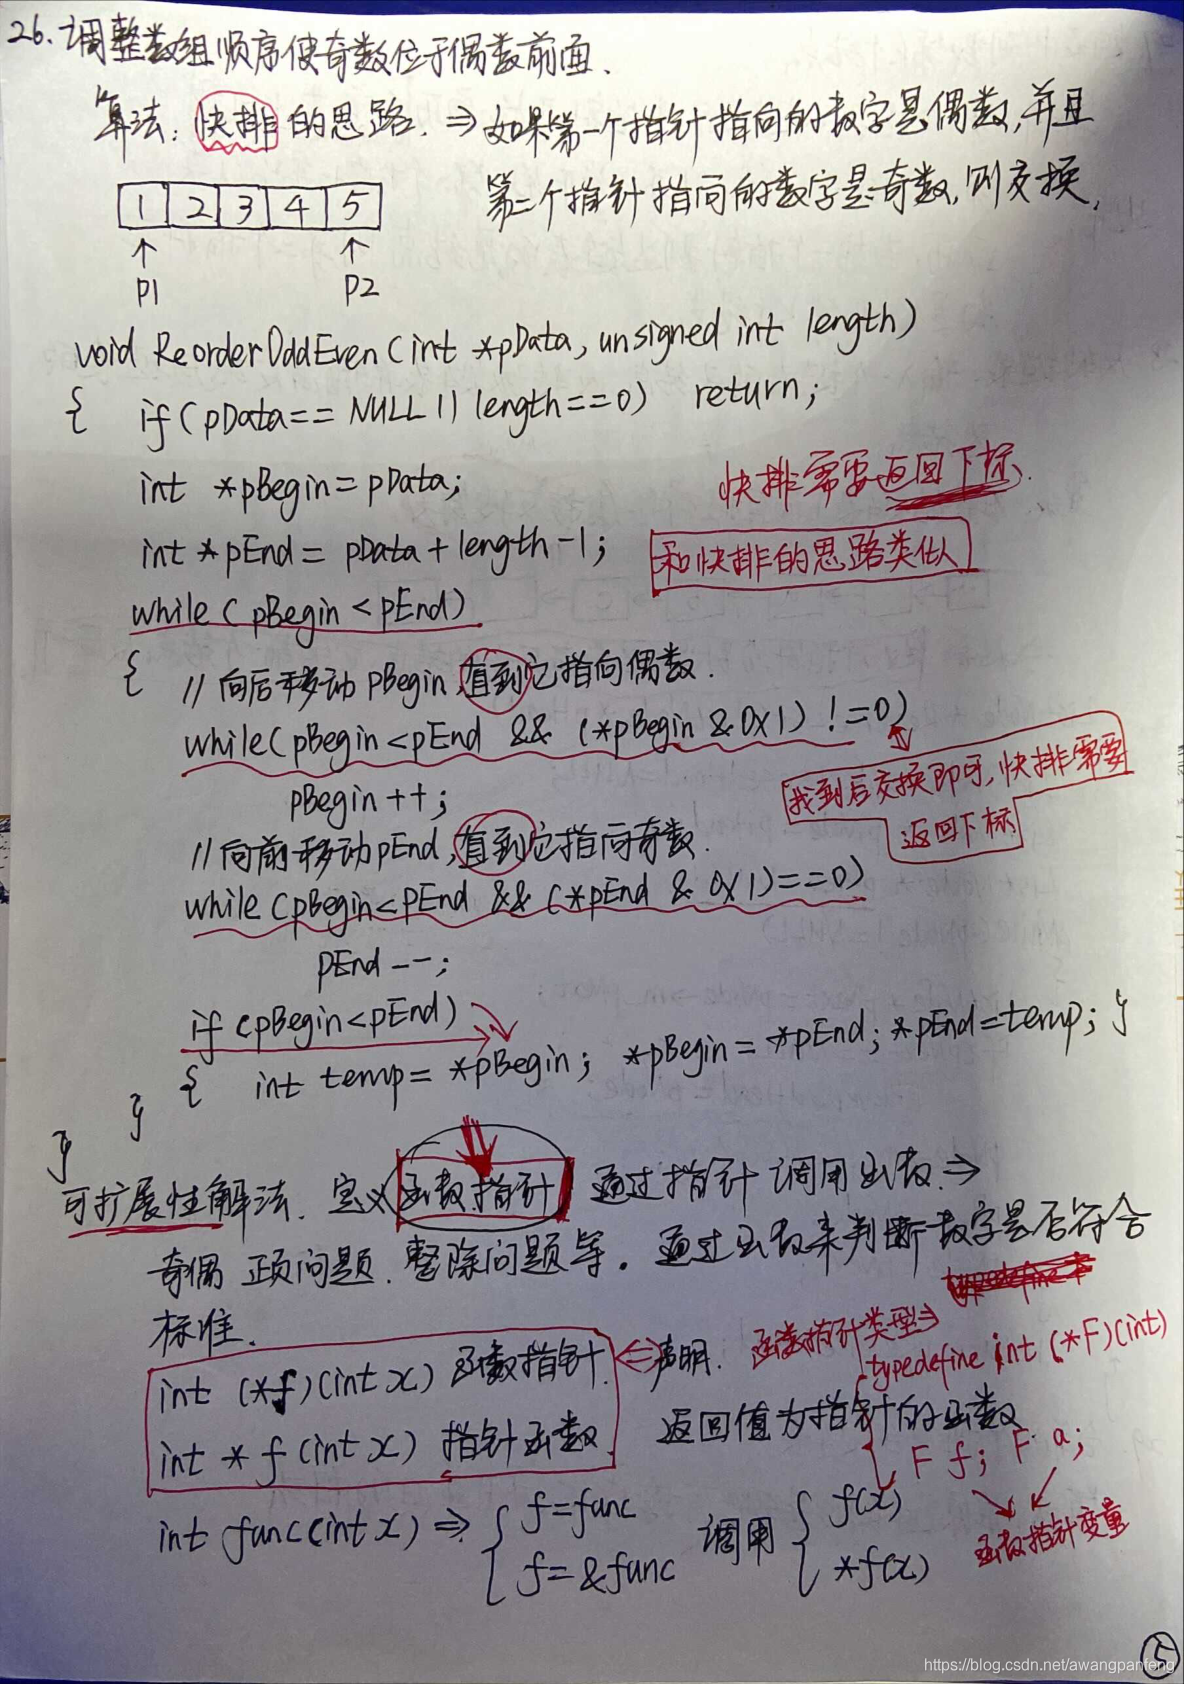 26.调整数组顺序使奇数位于偶数前面.
算法:快排的思路. ⇒ 如果第一个指针指向的数字是偶数,并且
第二个指针指向的数字是奇数,则交换.
1 2 3 4 5
↑ ↑
P1 P2
void ReorderOddEven(int *pData, unsigned int length)
{ if(pData==NULL || length==0) return;
int *pBegin=pData;
快排需要返回下标.
int *pEnd= pData+length-1;
和快排的思路类似
while(pBegin<pEnd)
{ //向后移动pBegin,直到它指向偶数.
while(pBegin<pEnd && (*pBegin & 0x1) !=0)
pBegin++;
找到后交换即可,快排需要
返回下标
//向前移动pEnd,直到它指向奇数.
while(pBegin<pEnd && (*pEnd & 0x1)==0)
pEnd--;
if(pBegin<pEnd)
{ int temp= *pBegin; *pBegin= *pEnd; *pEnd=temp; }
}
}
可扩展性解法. 定义函数指针 通过指针调用函数. ⇒
奇偶 正负问题. 整除问题等. 通过函数来判断数字是否符合
标准.
int (*f)(int x) 函数指针. ⇔ 声明. 函数指针类型⇒
typedefine int (*F)(int)
int * f(int x) 指针函数. 返回值为指针的函数
F f; F a;
函数指针变量
int func(int x) ⇒ { f=func 调用 { f(x)
f=&func *f(x)
5
https://blog.csdn.net/awangpanfeng